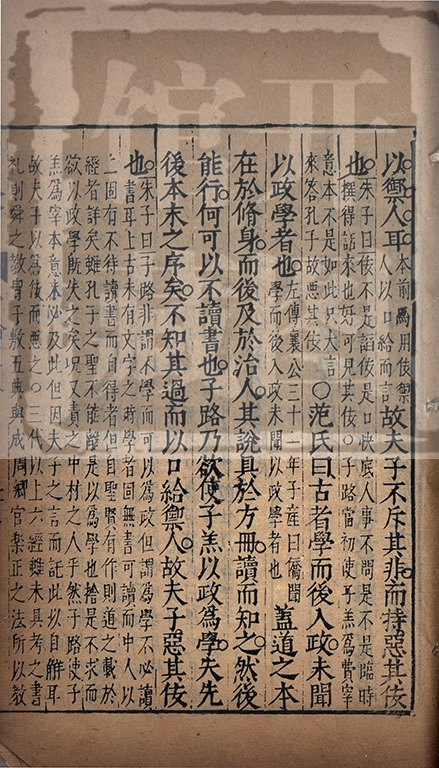 以禦人耳本前篇用佞禦人以口給而言故夫子不斥其非而特惡其佞
也朱子曰佞不是諂佞是口快底人事不問是不是臨時撰得話來也好可見其佞○子路當初使子羔為費宰
意本不是如此只大言來答孔子故惡其佞○范氏曰古者學而後入政未聞
以政學者也左傳襄公三十一年子產曰僑聞學而後入政未聞以政學者也蓋道之本
在於脩身而後及於治人其說具於方冊讀而知之然後
能行何可以不讀書也子路乃欲使子羔以政為學失先
後本末之序矣不知其過而以口給禦人故夫子惡其佞
也朱子曰子路非謂不學而可以為政但謂為學不必讀書耳上古未有文字之時學者固無書可讀而中人以
上固有不待讀書而自得者但自聖賢有作則道之載於經者詳矣雖孔子之聖不能離是以為學也捨是不求而
欲以政學既失之矣況又責之中材之人乎然子路使子羔為宰本意未必及此但因夫子之言而託此以自解耳
故夫子以為佞而惡之○三代以上六經雖未具考之書禮則舜之教冑子敷五典與成周鄉官樂正之法所以教